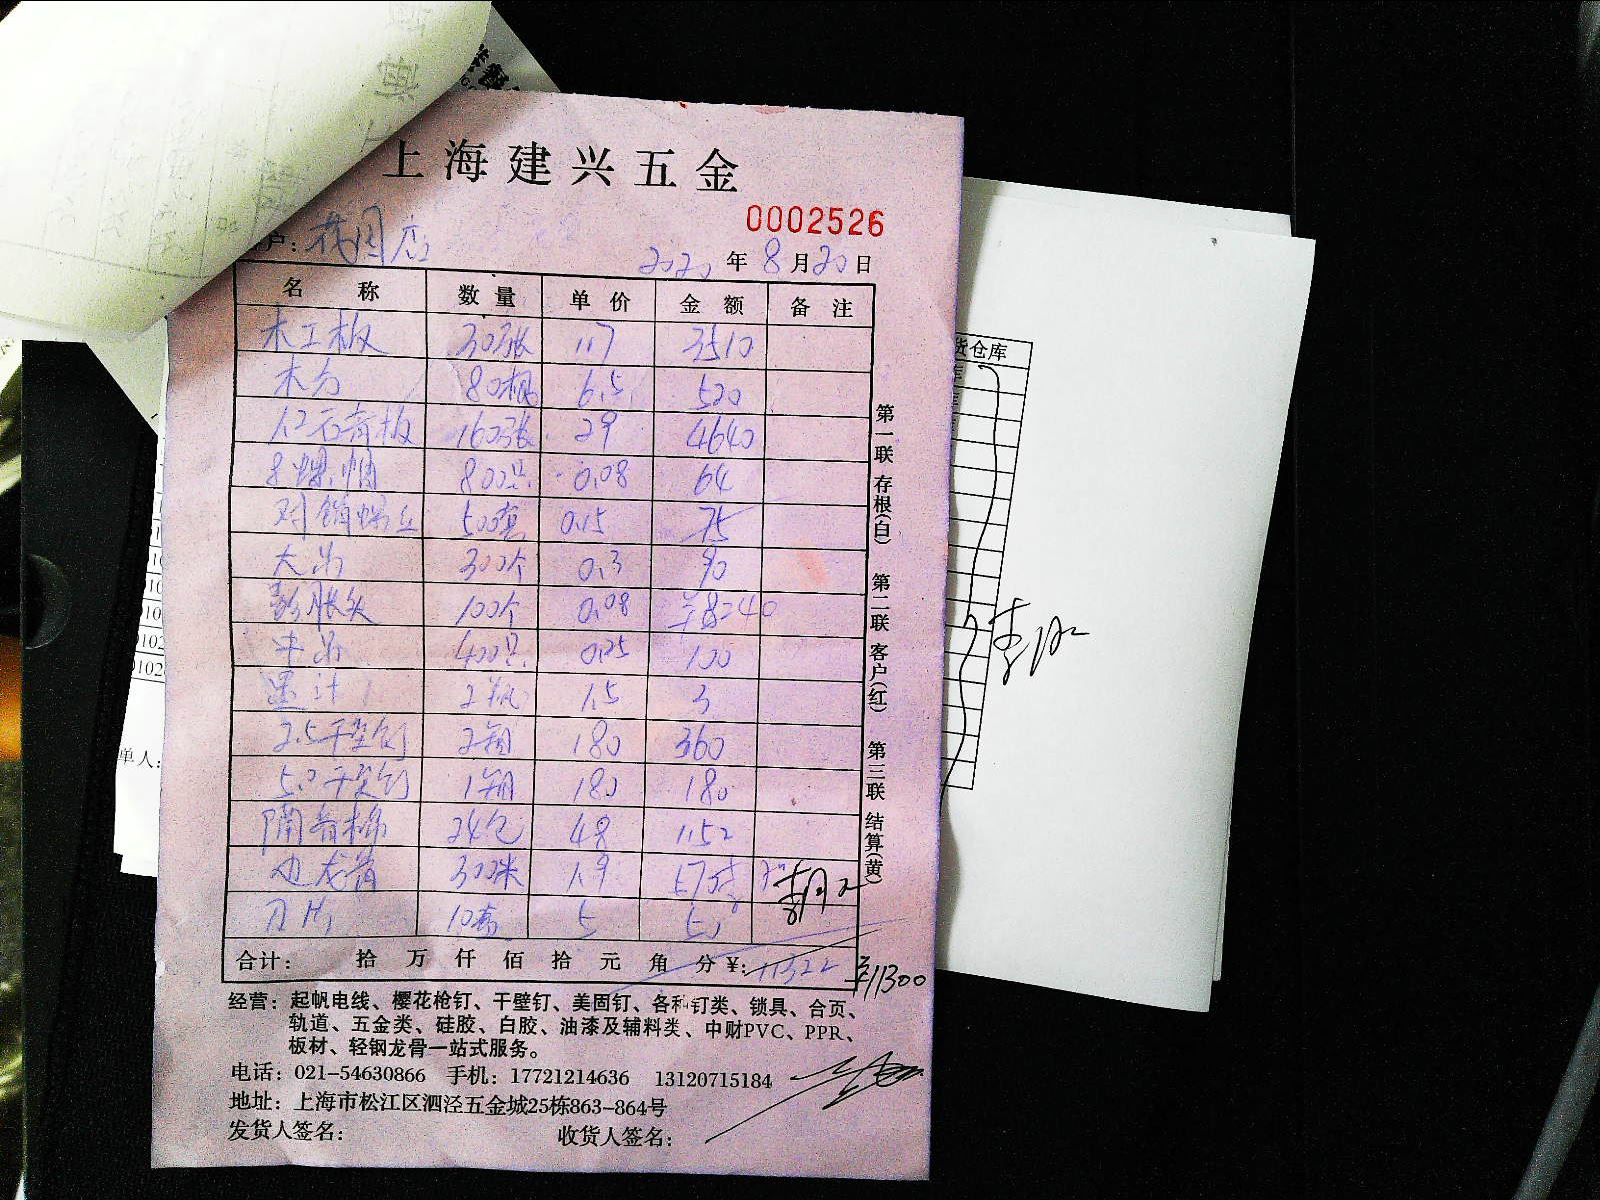 上海建兴五金
0002526
户：花园店
2020年8月20日
名称 数量 单价 金额 备注
木工板 30张 117 3510
木方 80根 6.5 520
石膏板 160张 29 4640
8螺帽 800只 0.08 64
对销螺丝 500套 0.15 75
大吊 300个 0.3 90
膨胀头 100个 0.08 8
中吊 400只 0.25 100
墨汁 2瓶 1.5 3
2.5干壁钉 2箱 180 360
5.0干壁钉 1箱 180 180
隔音棉 24包 48 1152
边龙骨 300米 1.9 570
刀片 10盒 5 50
合计： 拾 万 仟 佰 拾 元 角 分 ¥：11322
¥11300
第一联 存根(白) 第二联 客户(红) 第三联 结算(黄)
经营：起帆电线、樱花枪钉、干壁钉、美固钉、各种钉类、锁具、合页、
轨道、五金类、硅胶、白胶、油漆及辅料类、中财PVC、PPR、
板材、轻钢龙骨一站式服务。
电话：021-54630866 手机：17721214636 13120715184
地址：上海市松江区泗泾五金城25栋863-864号
发货人签名： 收货人签名：
货仓库
单人：